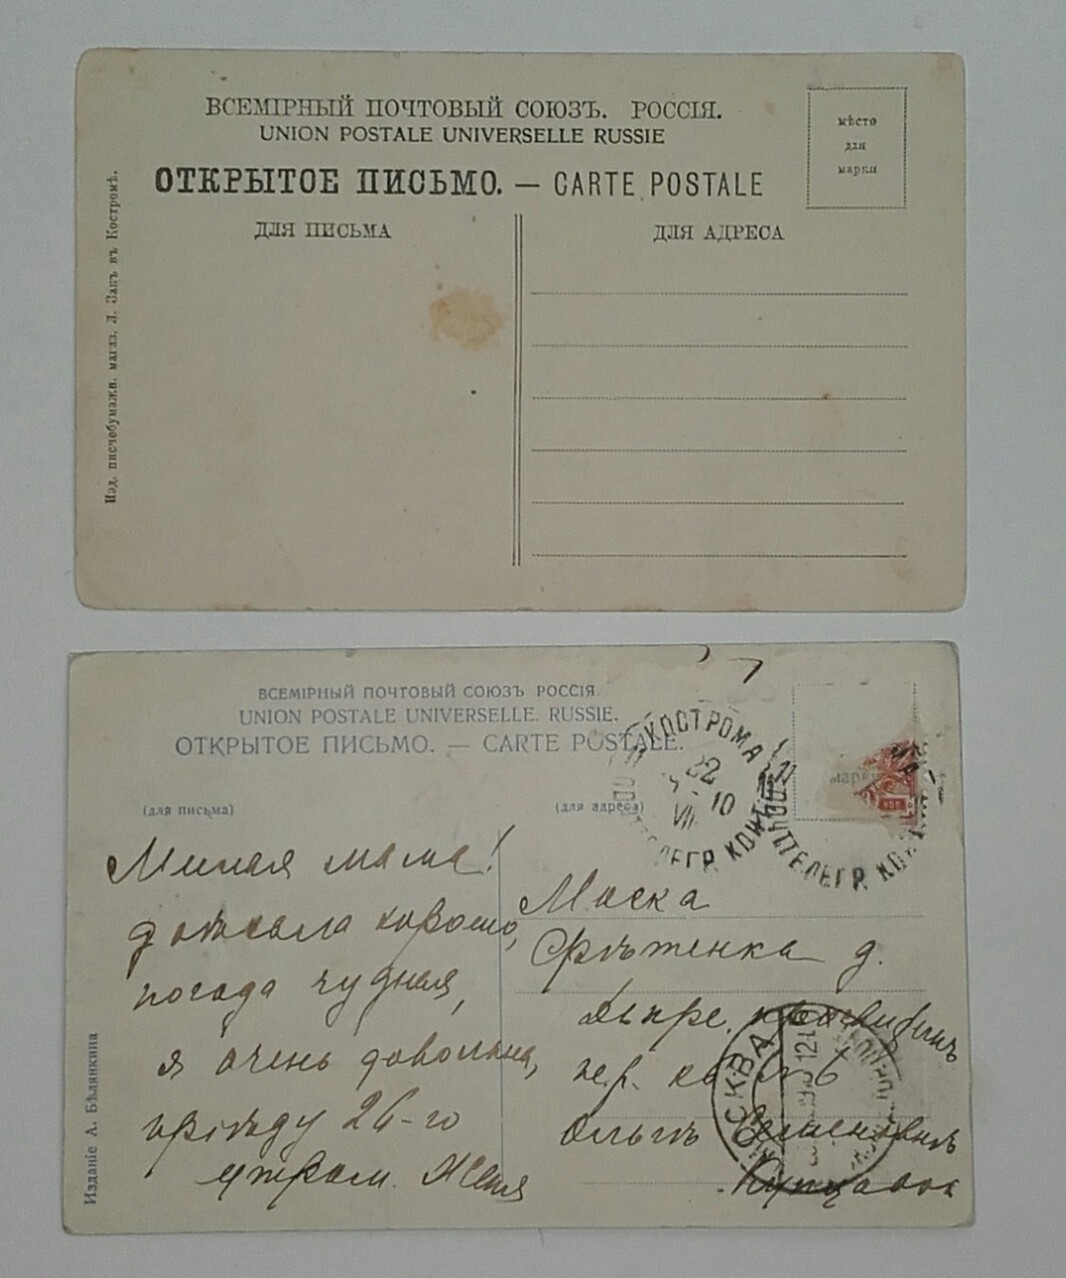 ВСЕМІРНЫЙ ПОЧТОВЫЙ СОЮЗЪ. РОССІЯ.
UNION POSTALE UNIVERSELLE RUSSIE
ОТКРЫТОЕ ПИСЬМО. — CARTE POSTALE
мѣсто
для
марки
ДЛЯ ПИСЬМА
ДЛЯ АДРЕСА
Изд. писчебумажн. магаз. Л. Закъ въ Костромѣ.
ВСЕМІРНЫЙ ПОЧТОВЫЙ СОЮЗЪ РОССІЯ
UNION POSTALE UNIVERSELLE. RUSSIE.
ОТКРЫТОЕ ПИСЬМО. — CARTE POSTALE.
КОСТРОМА
22
VII 10
ТЕЛЕГР. КОНТ
марки
ТЕЛЕГР. КОН
(для письма)
(для адреса)
Милая мама!
доѣхала хорошо,
погода чудная,
я очень довольна,
пріѣду 26-го
утром. Женя
Моска
Срѣтенка д.
кв. №6
Ольгѣ Семеновнѣ
МОСКВА
Изданіе А. Бѣлянкина